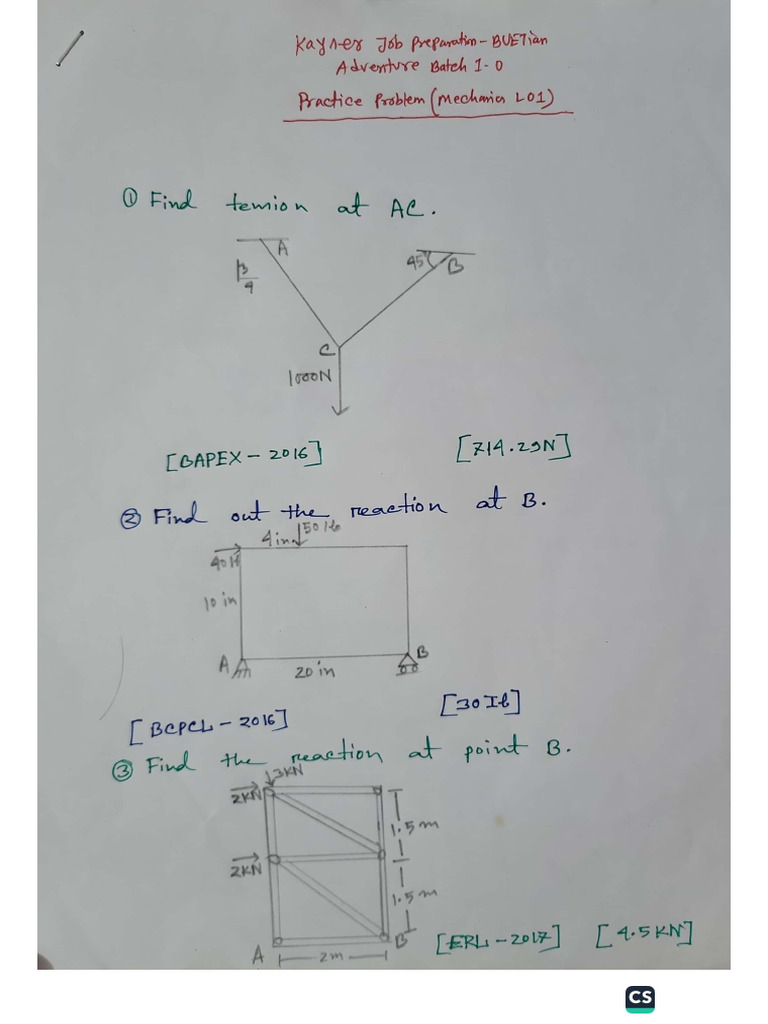 Kayner Job Preparation - BUETian
Adventure Batch 1.0
Practice Problem (Mechanics L01)
① Find tension at AC.
A
45°
B
3
4
C
1000N
[BAPEX - 2016] [714.29N]
② Find out the reaction at B.
4in 50 lb
40 lb
10 in
A 20 in B
[BCPCL - 2016] [30 Ib]
③ Find the reaction at point B.
3KN
2KN
1.5m
2KN
1.5m
A 2m B
[ERL - 2017] [4.5KN]
CS